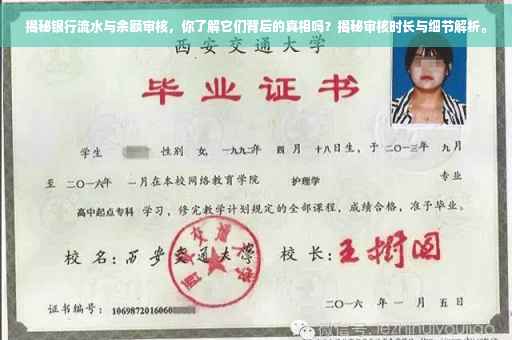 揭秘银行流水与余额审核，你了解它们背后的真相吗？揭秘审核时长与细节解析。
西安交通大学
毕业证书
学生 性别 女，一九九二年 四月 十八日生，于二〇一三年 九月
至 二〇一六年 一月在本校网络教育学院 护理学 专业
高中起点专科 学习，修完教学计划规定的全部课程，成绩合格，准予毕业。
校名：西安交通大学 校长：王树国
证书编号：1069872016060
二〇一六 年 一 月 五 日
微信号: jezhihuiyoujiao